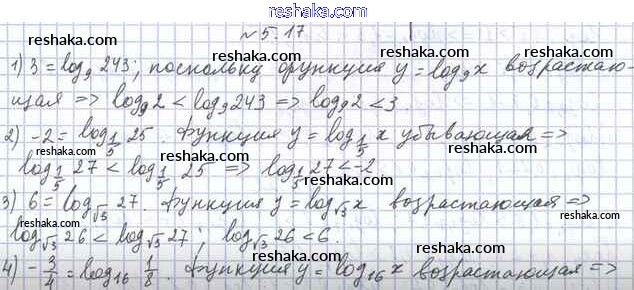 reshaka.com
№5.17
reshaka.com reshaka.com reshaka.com
1) 3 = log₉ 243; поскольку функция y = log₉ x возрастаю-
щая => log₉ 2 < log₉ 243 => log₉ 2 < 3.
reshaka.com reshaka.com reshaka.com
2) -2 = log_{1/5} 25. Функция y = log_{1/5} x убывающая =>
log_{1/5} 27 < log_{1/5} 25 => log_{1/5} 27 < -2
reshaka.com reshaka.com reshaka.com
3) 6 = log_{√3} 27. Функция y = log_{√3} x возрастающая =>
log_{√3} 26 < log_{√3} 27; log_{√3} 26 < 6.
reshaka.com reshaka.com reshaka.com
4) -3/4 = log₁₆ 1/8. Функция y = log₁₆ x возрастающая =>
reshaka.com reshaka.com reshaka.com